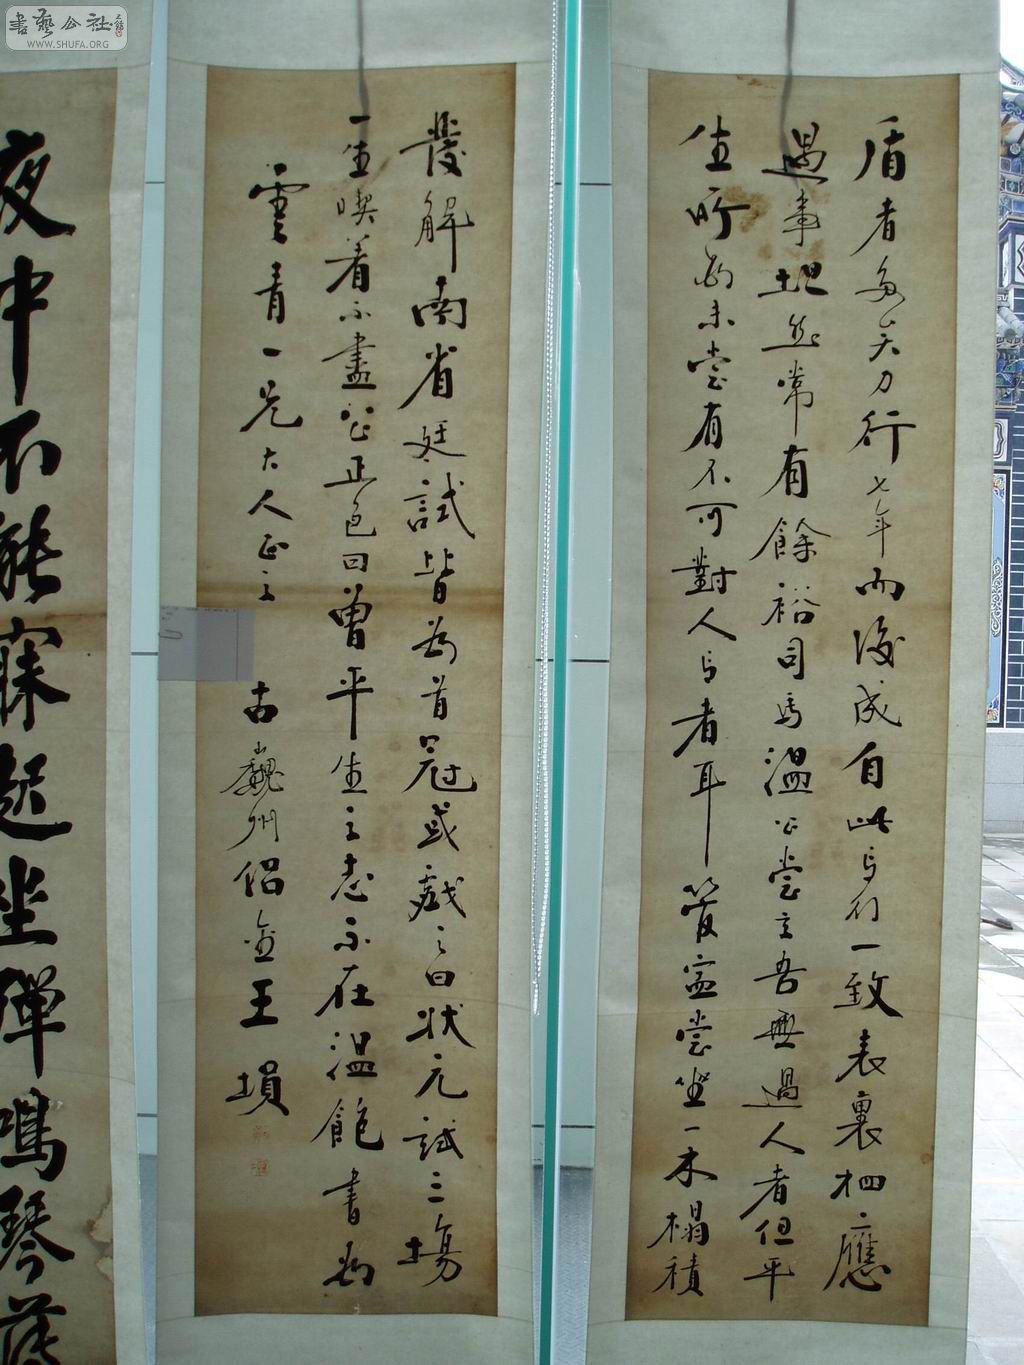 盾者多矣力行七年而後成自此言行一致表裏相應
遇事坦然常有餘裕司馬溫公嘗言吾無過人者但平
生所為未嘗有不可對人言者耳管寧嘗坐一木榻積
發解南省廷試皆為首冠或戲之曰狀元試三場
一生喫着不盡公正色曰曽平生之志不在溫飽書為
雲青一兄大人正之
古巍州侶金王塤
夜中不能寐起坐彈鳴琴薄
書藝公社
WWW.SHUFA.ORG